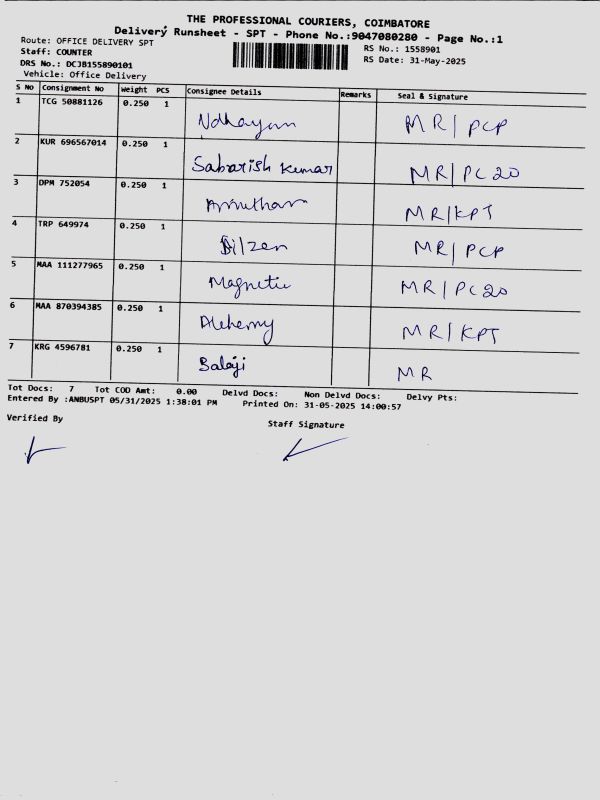 THE PROFESSIONAL COURIERS, COIMBATORE
Delivery Runsheet - SPT - Phone No.:9047080280 - Page No.:1
Route: OFFICE DELIVERY SPT
Staff: COUNTER
DRS No.: DCJB155890101
Vehicle: Office Delivery
RS No.: 1558901
RS Date: 31-May-2025
S No Consignment No Weight PCS Consignee Details Remarks Seal & Signature
1 TCG 50881126 0.250 1 Udhayam MR/PCP
2 KUR 696567014 0.250 1 Sabarish Kumar MR/PC20
3 DPM 752054 0.250 1 MR/KPT
4 TRP 649974 0.250 1 MR/PCP
5 MAA 111277965 0.250 1 Magnetic MR/PC20
6 MAA 870394385 0.250 1 Alchemy MR/KPT
7 KRG 4596781 0.250 1 Balaji MR
Tot Docs: 7 Tot COD Amt: 0.00 Delvd Docs: Non Delvd Docs: Delvy Pts:
Entered By :ANBUSPT 05/31/2025 1:38:01 PM Printed On: 31-05-2025 14:00:57
Verified By
Staff Signature